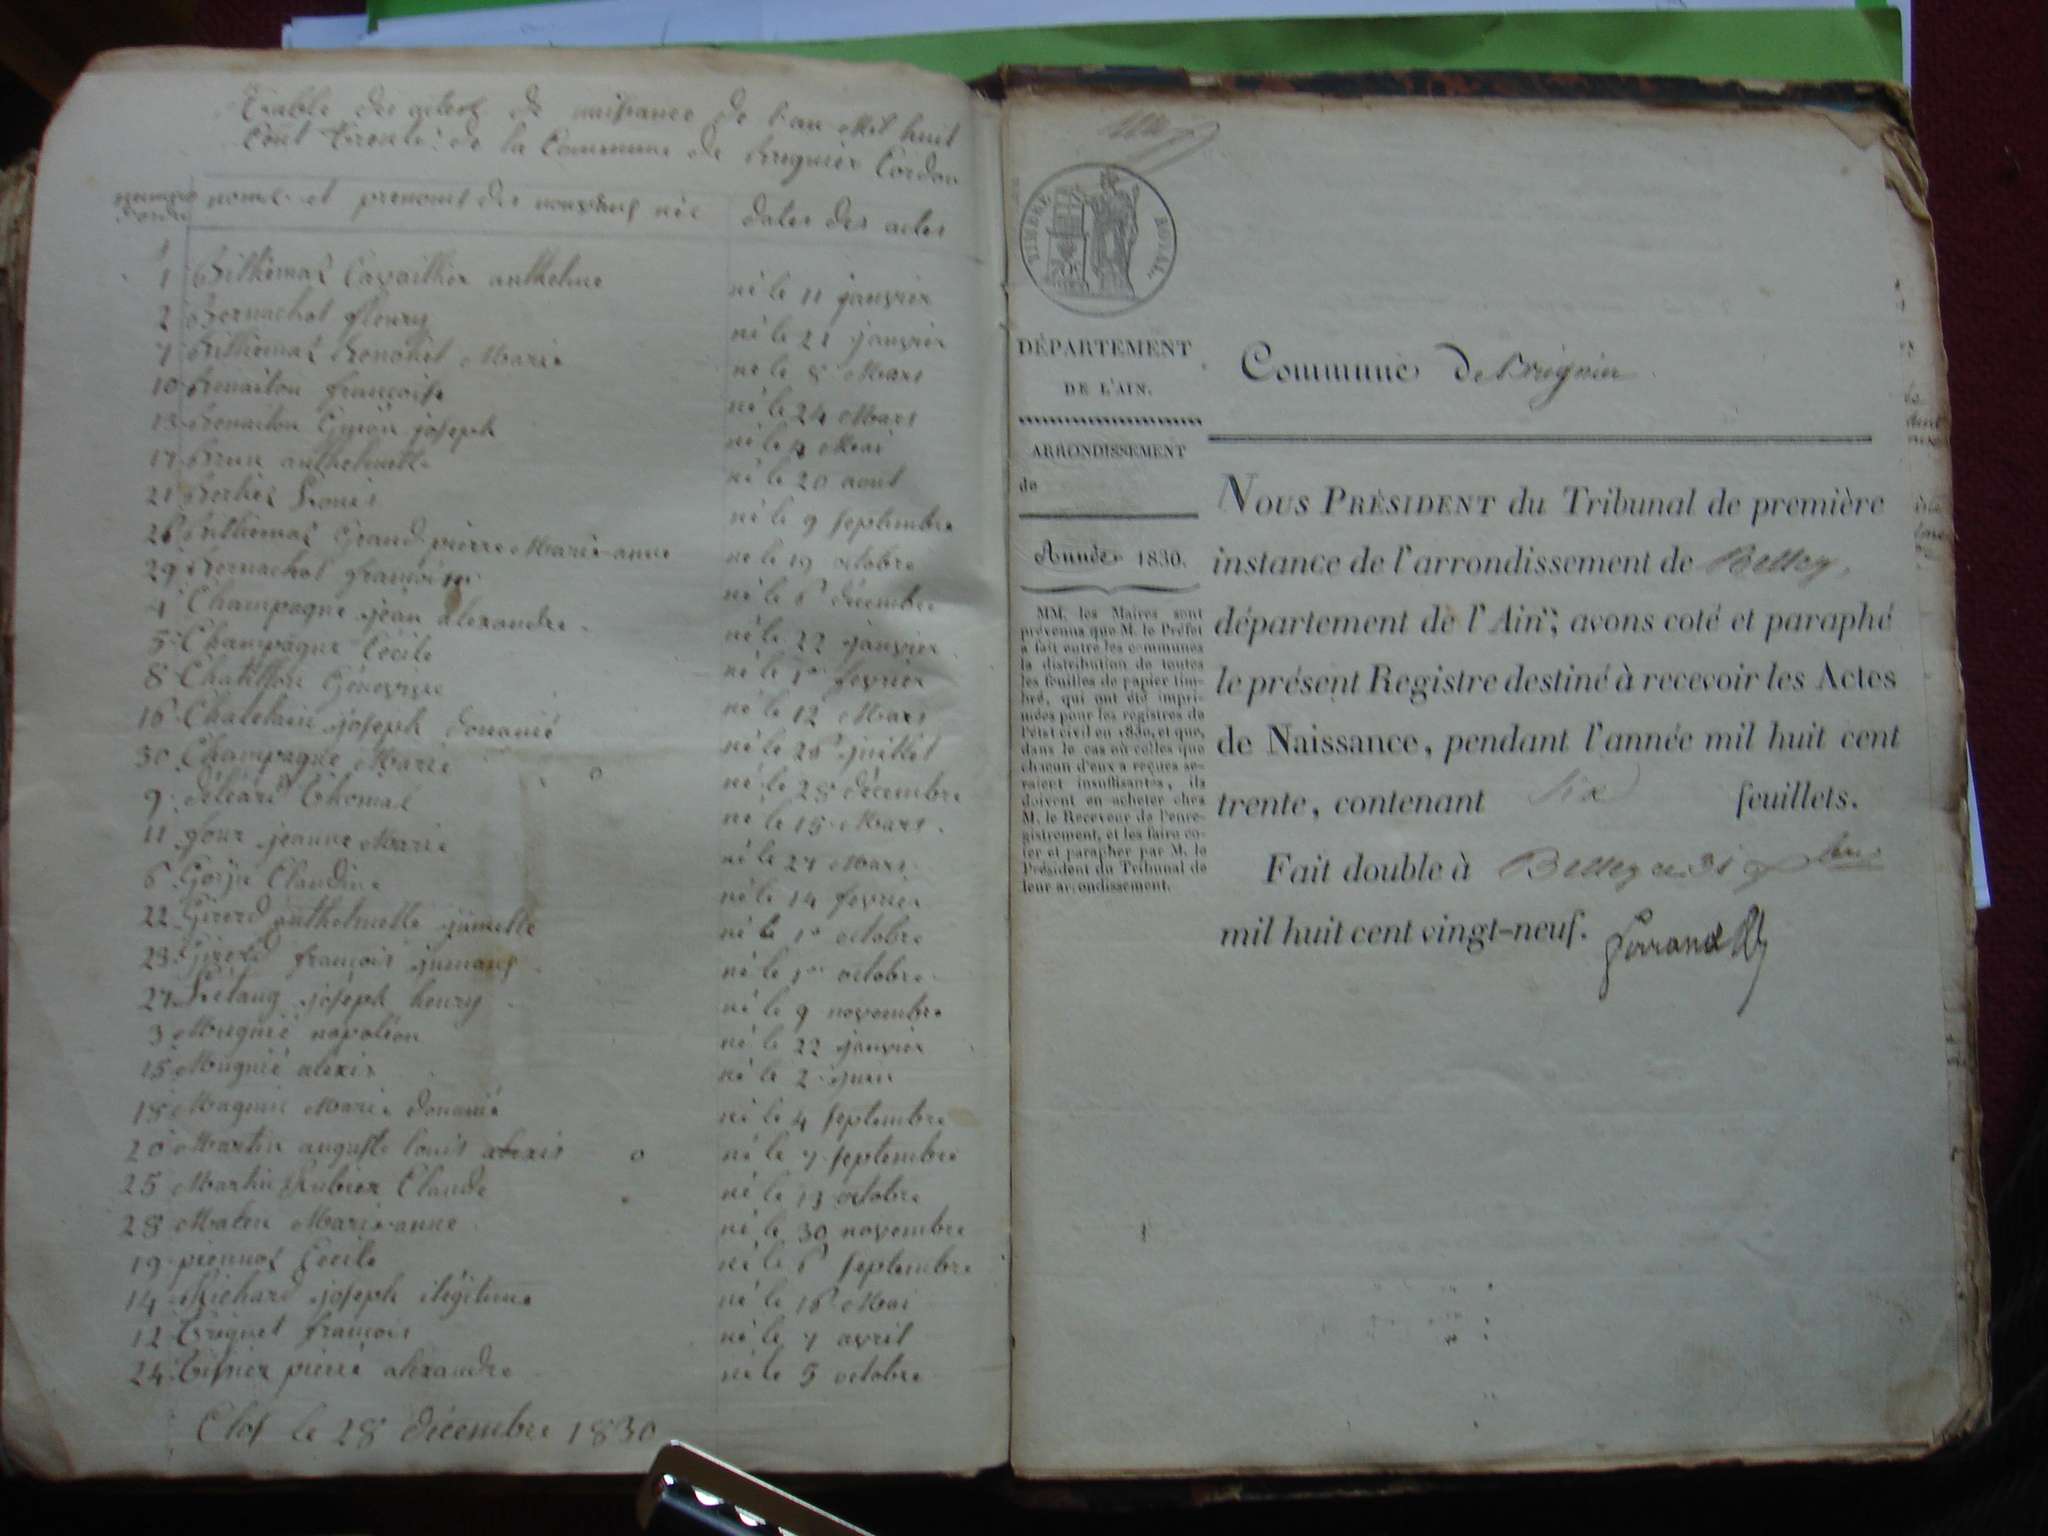 Table des actes de naissance de l'an Mil huit
Cent trente de la Commune de Bregnier Cordon
numero d'ordre
noms et prenoms des nouveaux nés
dates des actes
1 Bithemas Cavailhex anthelme né le 11 janvier
2 Bernachot fleury né le 21 janvier
7 Bithemas Benohit Marie né le 8 Mars
10 françoise né le 24 Mars
13 joseph né le 4 Mai
17 Brun anthelmette né le 20 aout
21 Louis né le 9 septembre
26 Bithemas Grand pierre Marie anne né le 19 octobre
29 Bernachot françoise né le 6 décembre
4 Champagne jean alexandre né le 22 janvier
5 Champagne Cécile né le 1er fevrier
8 Chatillon Génevieve né le 12 Mars
16 Chatelain joseph donnanié né le 26 juillet
30 Champagne Marie né le 28 décembre
9 déléari thomas né le 15 Mars
11 four jeanne Marie né le 27 Mars
6 Goiju Claudine né le 14 fevrier
22 Girerd anthelmette jumelle né le 1er octobre
23 Girerd françois jumeaux né le 1er octobre
27 Létang joseph henry né le 9 novembre
3 Mugnié napoléon né le 22 janvier
15 Mugnié alexis né le 2 juin
18 Magnin Marie né le 4 septembre
20 Martin auguste louis alexis né le 7 septembre
25 Martin Rubiex Claude né le 13 octobre
28 Marie anne né le 30 novembre
19 pionnos Cecile né le 6 septembre
14 Richard joseph ilégitime né le 16 Mai
12 Triquet françois né le 7 avril
24 Tissier pierre alexandre né le 5 octobre
Clos le 28 décembre 1830
TIMBRE ROYAL.
DÉPARTEMENT
DE L'AIN.
ARRONDISSEMENT
de
Année 1830.
MM. les Maires sont
prévenus que M. le Préfet
a fait entre les communes
la distribution de toutes
les feuilles de papier tim-
bré, qui ont été impri-
mées pour les registres de
l'état civil en 1830, et que,
dans le cas où celles que
chacun d'eux a reçues se-
raient insuffisantes, ils
doivent en acheter chez
M. le Receveur de l'enre-
gistrement, et les faire co-
ter et parapher par M. le
Président du Tribunal de
leur arrondissement.
Commune de Bregnier
NOUS PRÉSIDENT du Tribunal de première
instance de l'arrondissement de Belley,
département de l'Ain, avons coté et paraphé
le présent Registre destiné à recevoir les Actes
de Naissance, pendant l'année mil huit cent
trente, contenant six feuillets.
Fait double à Belley ce 31 xbre
mil huit cent vingt-neuf.